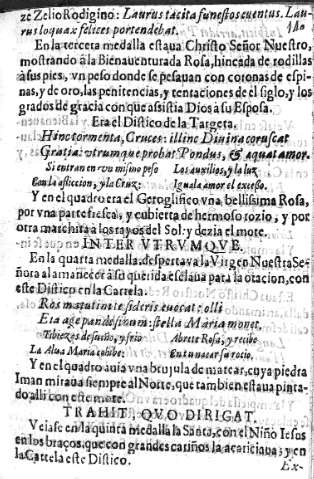 ze Zelio Rodigino: Laurus tacita funestos euentus. Lau-
rus loquax felices portendebat.
En la tercera medalla estaua Christo Señor Nuestro,
mostrando à la Bienauenturada Rosa, hincada de rodillas
à sus pies, vn peso donde se pesauan con coronas de espi-
nas, y de oro, las penitencias, y tentaciones de el siglo, y los
grados de gracia con que assistia Dios à su Esposa.
Era el Distico de la Targeta.
Hinc tormenta, Cruces: illinc Diuina coruscat
Gratia: vtrumque probat Pondus, & aquat amor.
Si entran en vn mismo peso Los auxilios, y la luz
Con la afliccion, y la Cruz: Iguala amor el excesso.
Y en el quadro era el Geroglifico vna bellissima Rosa,
por vna parte fresca, y cubierta de hermoso rozio, y por
otra marchita à los rayos del Sol: y dezia el mote.
INTER VTRVMQVE.
En la quarta medalla, despertaua la Virgen Nuestra Se-
ñora al amanecer à su querida esclaua para la oracion, con
este Distico en la Cartela.
Ros matutine sideris euocat: olli
Eta age pande sinum: stella Maria monet.
Tibiezas de sueño, y frio Abrete Rosa, y recibe
La Alua Maria cohibe: En tu nacar su rocio.
Y en el quadro auia vna brujula de marear, cuya piedra
Iman miraua siempre al Norte, que tambien estaua pinta-
do alli con este mote.
TRAHIT, QVO DIRIGAT.
Veiase en la quinta medalla la Santa, con el Niño Iesus
en los braços, que con grandes cariños la acariciaua; y en
la Cartela este Distico.
Ex-